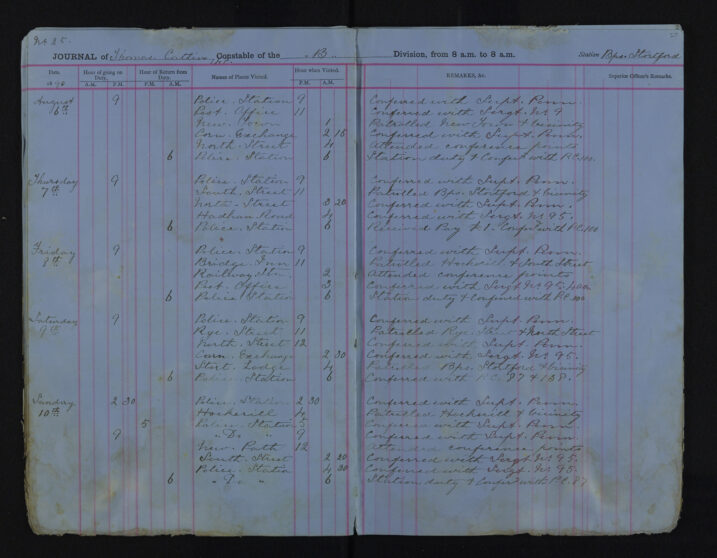 No 25.
JOURNAL of Thomas Collins Constable of the "B" Division, from 8 a.m. to 8 a.m. Station Bps. Stortford
Date. Hour of going on Duty. Hour of Return from Duty. Names of Places Visited. Hour when Visited. REMARKS, &c. Superior Officer's Remarks.
1890 A.M. P.M. A.M. P.M. P.M. A.M.
August 9 Police Station 9 Conferred with Supt. Penn.
6th Post Office 11 Conferred with Sergt. No 9
New Town 1 Patrolled New Town & Vicinity
Corn Exchange 2 15 Conferred with Supt. Penn.
North Street 4 Attended conference points
6 Police Station 6 Station duty & Confed with P.C. 100.
Thursday 9 Police Station 9 Conferred with Supt. Penn.
7th South Street 11 Patrolled Bps. Stortford & Vicinity
North Street 3 20 Conferred with Supt. Penn.
Hadham Road 4 Conferred with Sergt. No 95.
6 Police Station 6 Received Pay & 1. Confed with P.C. 100
Friday 9 Police Station 9 Conferred with Supt. Penn.
8th Bridge Inn 11 Patrolled Hockerill & South Street
Railway Stn. 2 Attended conference points
Post Office 3 Conferred with Sergt No 95. 4am
6 Police Station 6 Station duty & Confered with P.C. 100
Saturday 9 Police Station 9 Conferred with Supt. Penn.
9th Rye Street 11 Patrolled Rye Street & North Street
North Street 12 Conferred with Supt. Penn.
Corn Exchange 2 30 Conferred with Sergt. No 95.
Stort Lodge 4 Patrolled Bps. Stortford & Vicinity
6 Police Station 6 Conferred with P.C. 87 & 158.
Sunday 2 30 Police Station 2 30 Conferred with Supt. Penn.
10th Hockerill 4 Patrolled Hockerill & Vicinity
5 Police Station 5 Conferred with Supt. Penn.
9 " Do " 9 Conferred with Supt. Penn
New Path 12 Attended conference points
South Street 2 20 Conferred with Sergt. No 95.
Police Station 4 30 Conferred with Sergt. No 95.
6 " Do " 6 Station duty & Confed with P.C. 87